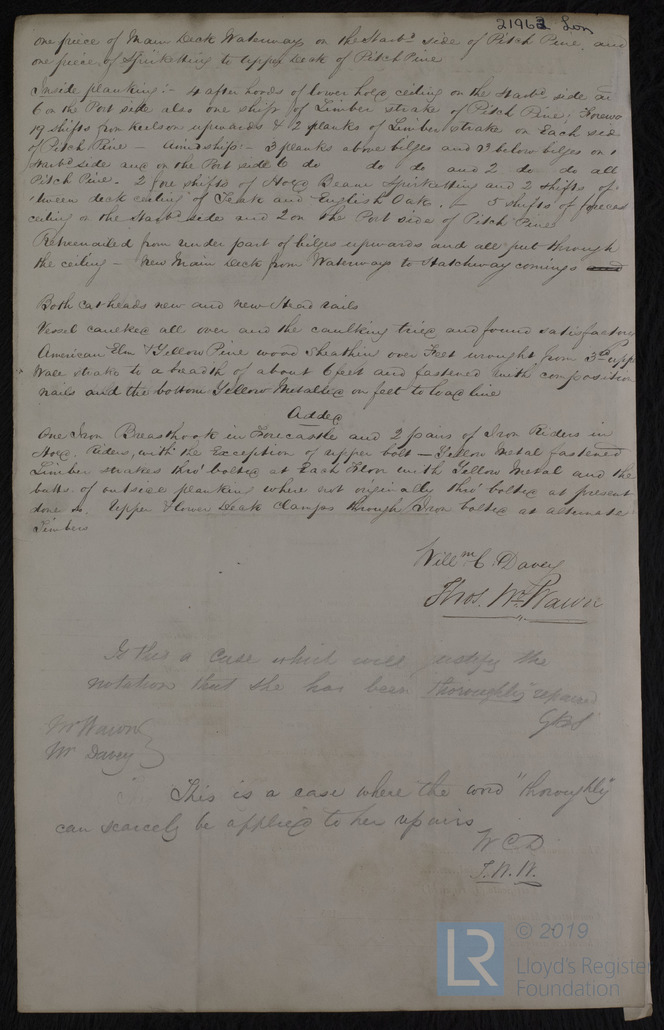 21963 Lon
one piece of Main Deck Waterway on the Starbd side of Pitch Pine, and
one piece of Spirketting to upper Deck of Pitch Pine
Inside planking:- 4 after hoods of lower hold ceiling on the Starbd side an
6 on the Port side also one shift of Limber strake of Pitch Pine; Forewd
19 shifts from keelson upwards & 2 planks of Limber strake on Each side
of Pitch Pine - amidship:- 3 planks above bilges and 2 below bilges on
Starbd side and on the Port side 6 do do do and 2 do do all
Pitch Pine. 2 fore shifts of Hold Beam Spirketting and 2 shifts of
tween deck ceiling of Teak and English Oak. - 5 shifts of
ceiling on the Starbd side and 2 on the Port side of Pitch Pine
Retreenailed from under part of bilges upwards and all put through
the ceiling - New Main Deck from Waterways to Hatchway comings
Both catheads new and new Head rails
Vessel caulked all over and the caulking tried and found satisfactory
American Elm & Yellow Pine wood sheathing over Felt wrought from 3rd upp
Wale strake to a breadth of about 6 feet and fastened with composition
nails and the bottom Yellow Metalled on felt to load line
Added
One Iron Breasthook in Forecastle and 2 pairs of Iron Riders in
Hold. Riders, with the exception of upper bolt - Yellow Metal fastened
Limber strakes thro' bolted at Each Floor with Yellow Metal and the
butts of outside planking where not originally thro' bolted at present
done so. Upper & lower Deck Clamps through Iron bolted at alternate
Timbers
Willm C. Davey
Thos. Wm Wawn
Is this a case which will justify the
notation that she has been "thoroughly" repaired
Mr Wawn
Mr Davey
This is a case where the word "thoroughly"
can scarcely be applied to her repairs
W C D
T. W. W.
LR © 2019
Lloyd's Register
Foundation